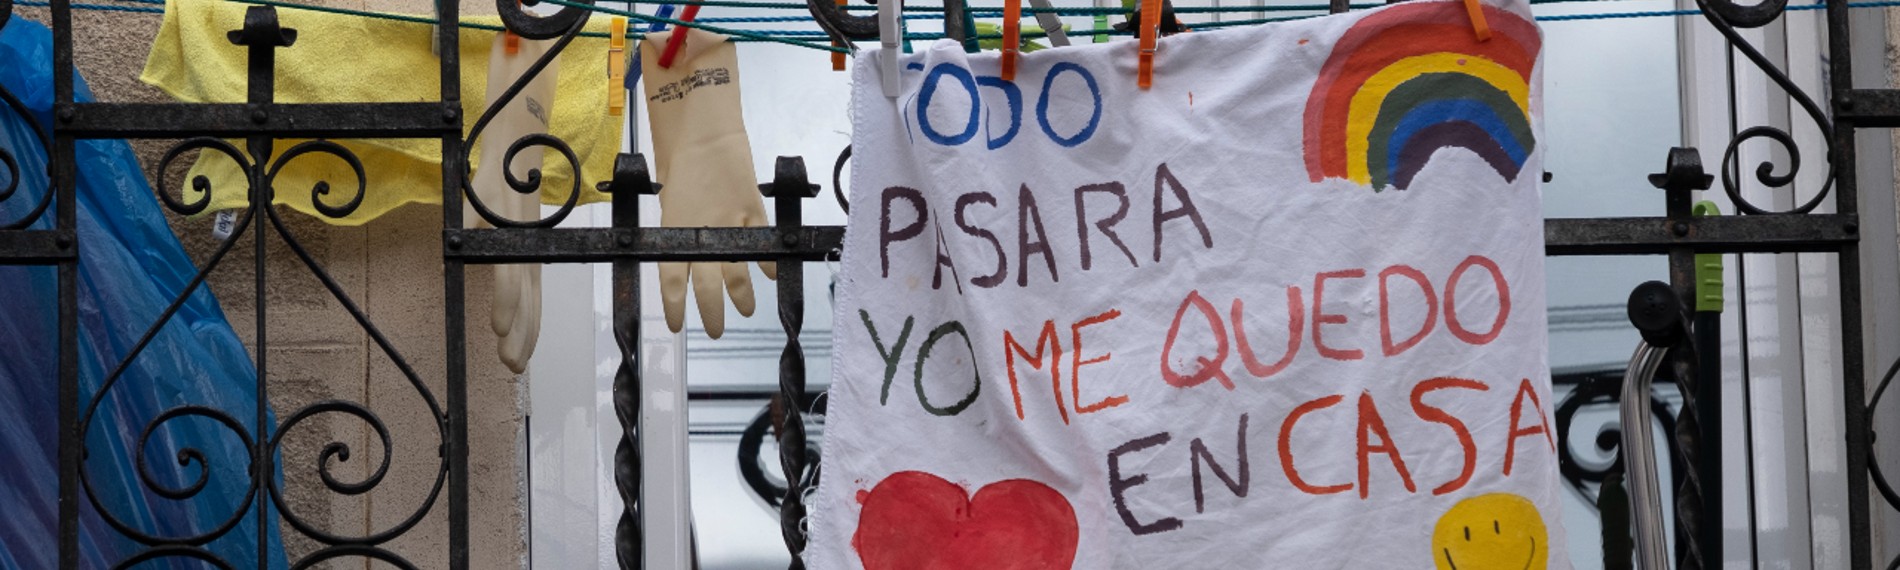 TODO
PASARA
YO ME QUEDO
EN CASA